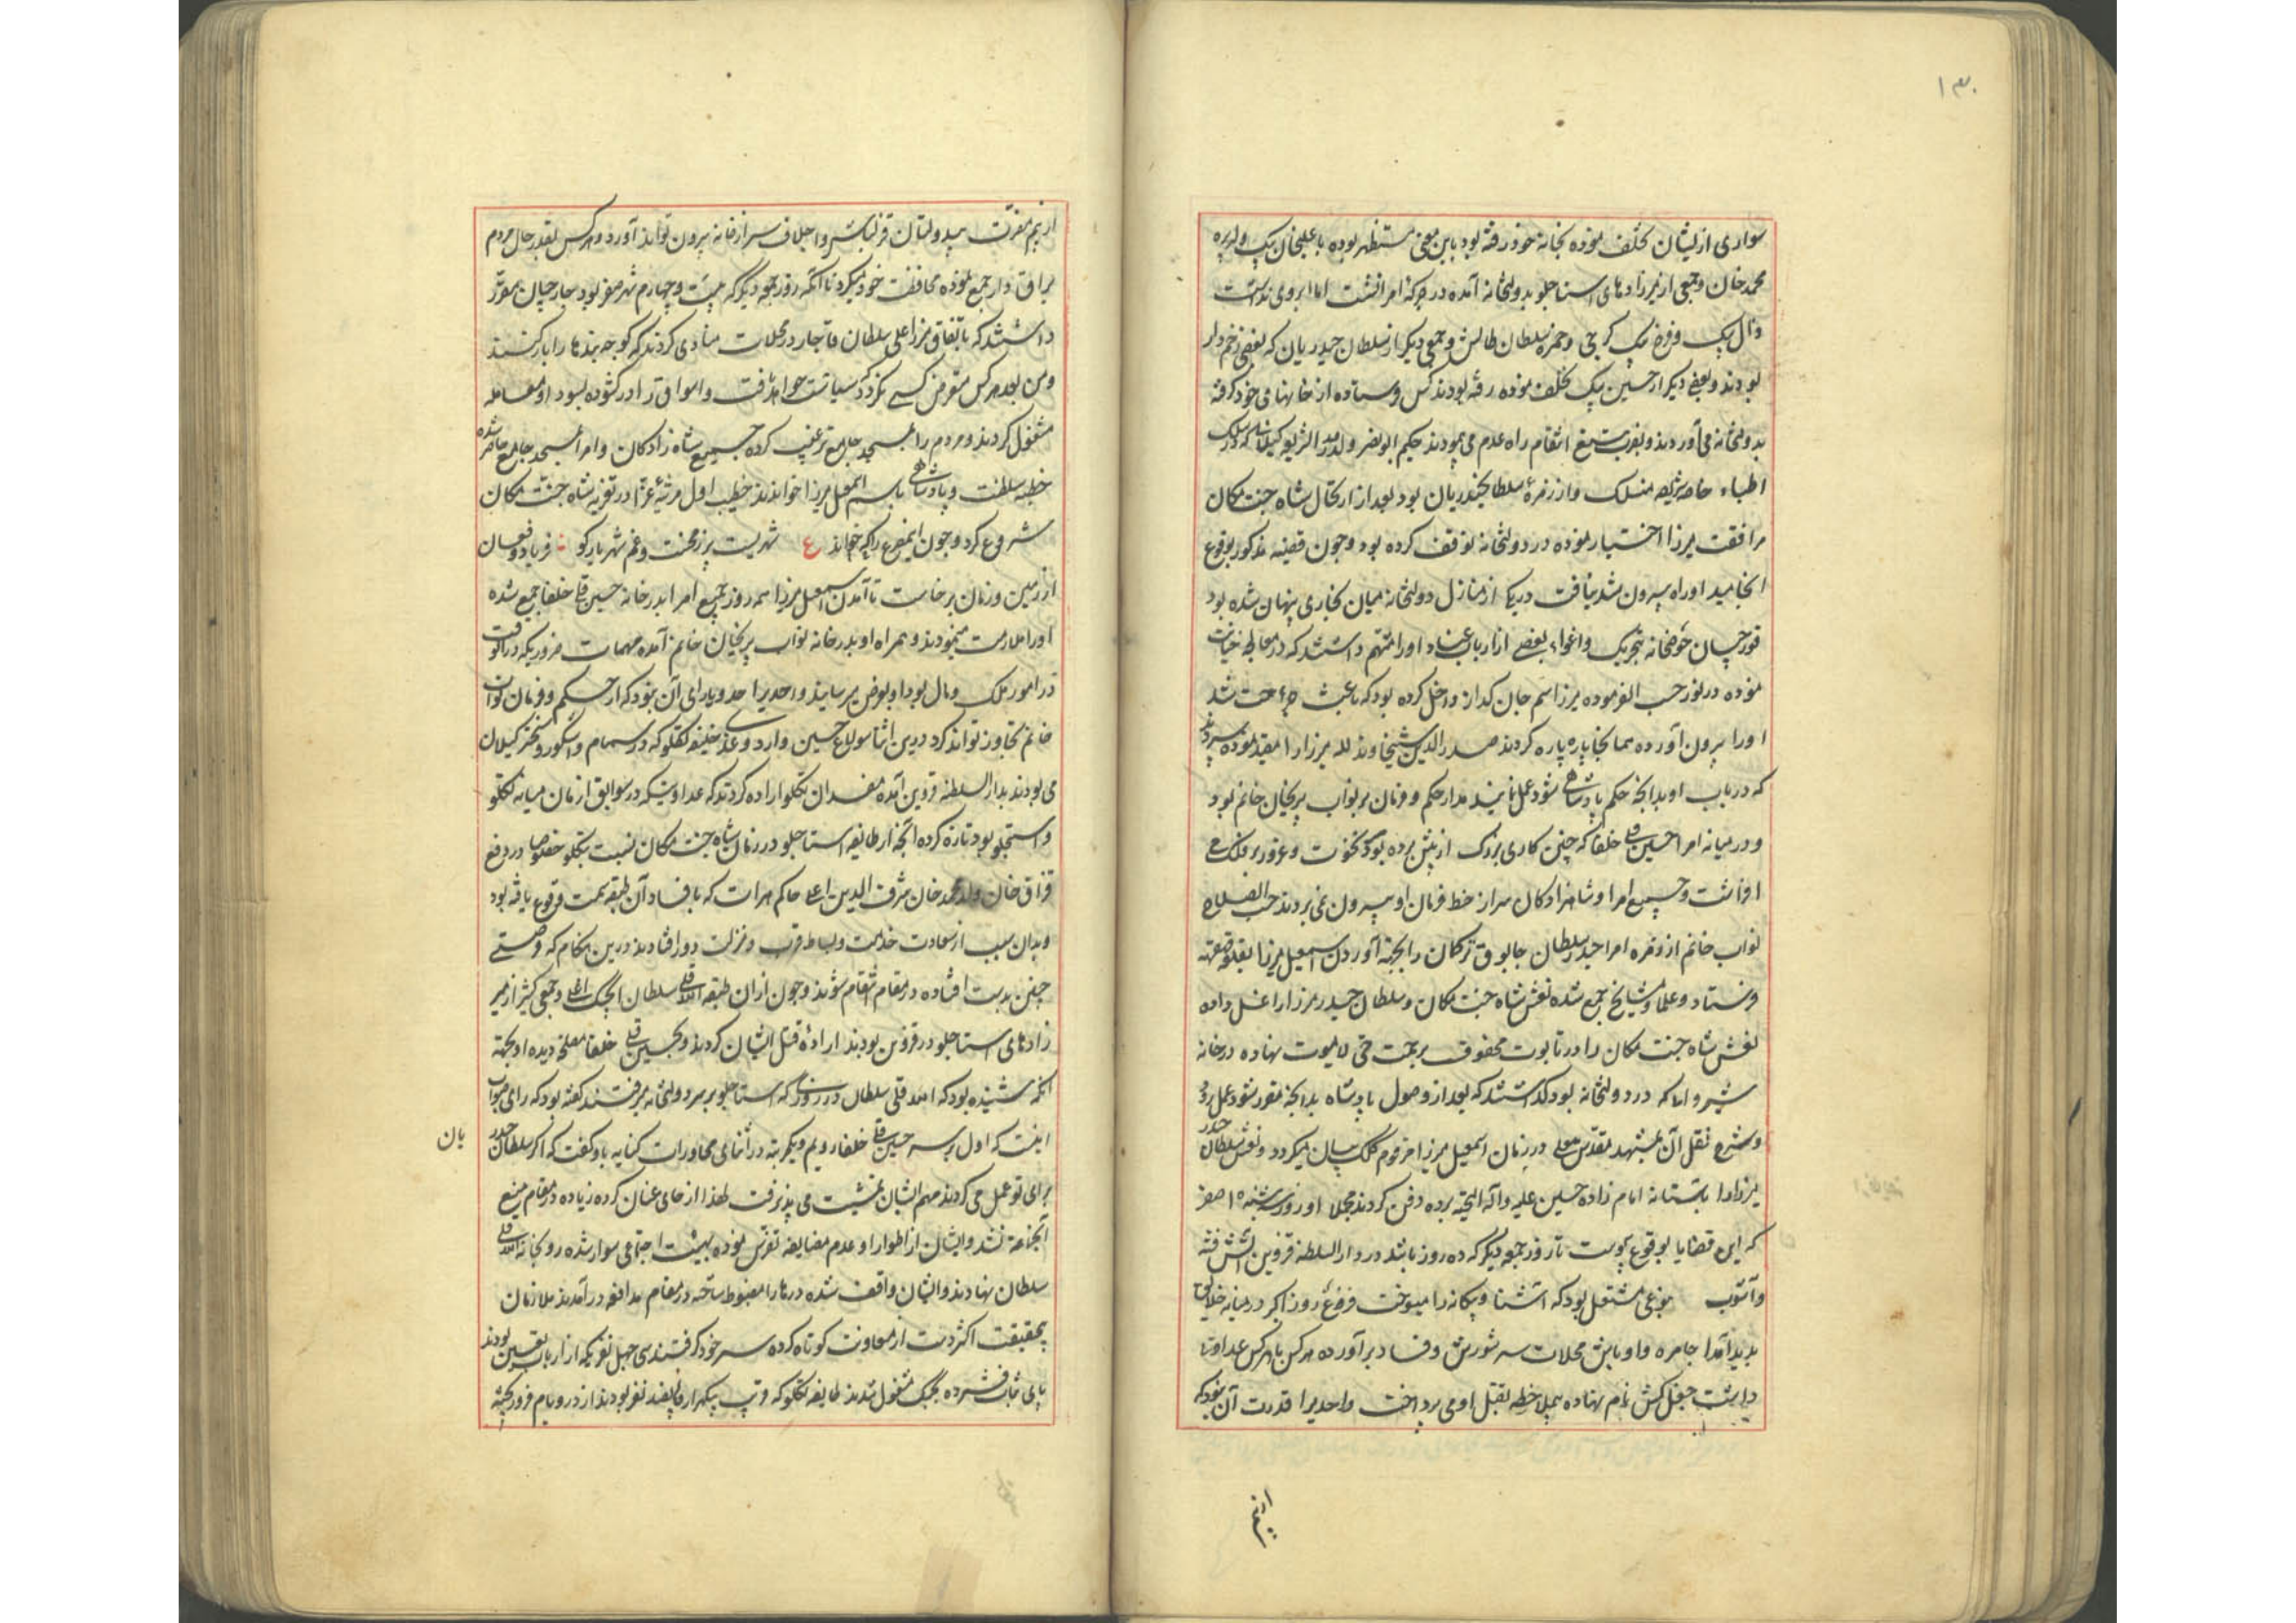 ۱۳۰
سواری ازیشان تخلف نموده بخانه خود رفته بود باین معنی مستظهر بوده با علیخان بیک ولد پیره
محمد خان و جمعی از میرزادهای استاجلو بدولتخانه آمده در جرکه امرا نشست اما ابروی نداشت
وزال بیک و فرخ بیک کرجی و حمزه سلطان طالش و جمعی دیگر از سلطان حیدریان که بعضی زخم دار
بودند و بعضی دیکر از حسین بیک تخلف نموده رفته بودند کس فرستاده از خانهای خود گرفته
بدولتخانه می آوردند و بضرب تیغ انتقام راه عدم می پیمودند حکیم ابو نصر ولد صدر الشریعه کیلانی که در سلک
اطباء خاصه شریفه منسلک و از زمره سلطان حیدریان بود بعد از ارتحال شاه جنت مکان
مرافقت میرزا اختیار نموده در دولتخانه توقف کرده بود و چون قضیه مذکور بوقوع
انجامید او راه بیرون شد نیافت در یکی از منازل دولتخانه میان بخاری پنهان شده بود
قورچیان حوضخانه بتحریک و اغواء بعضی از ارباب عناد او را متهم داشتند که در معالجه خیانت
نموده در نوره حسب الفرموده میرزا سم جان کداز داخل کرده بود که باعث جراحت شد
او را بیرون آورده همانجا پاره پاره کردند صدر الدین شیخاوند لله میرزا را مقید نموده سپردند
که در باب او بدانچه حکم پادشاهی شود عمل نمایند مدار حکم و فرمان بر نواب پریخان خانم بود
و در میانه امرا حسین قلی خلفا که چنین کاری بزرک از پیش برده بود نخوت و غرور بر فلک می
افراشت و جمیع امرا و شاهزادکان سر از خط فرمان او بیرون نمی بردند حسب الصلاح
نواب خانم از زمره امرا حیدر سلطان چابوق ترکمان را بجهة آوردن اسمعیل میرزا بقلعه قهقهه
فرستاد و علما و مشایخ جمع شده نعش شاه جنت مکان و سلطان حیدر میرزا را غسل داده
نعش شاه جنت مکان را در تابوت محفوف برحمت حی لا یموت نهاده در خانه
شیروانی که در دولتخانه بود گذاشتند که بعد از وصول پادشاه بدانچه مقرر شود عمل رود
و شرح نقل آن بمشهد مقدس معلی در زمان اسمعیل میرزا مرقوم کلک بیان میکردد و نعش سلطان حیدر
میرزا را باستانه امام زاده حسین علیه و آله التحیة برده دفن کردند مجملا از روز سه شنبه ۱۵ صفر
که این قضایا بوقوع پیوست تا روز جمعه دیگر که ده روز باشد در دار السلطنه قزوین آتش فتنه
و آشوب بنوعی مشتعل بود که آشنا و بیکانه را میسوخت فزع روز اکبر در میانه خلایق
پدید آمد اجامره و اوباش محلات سر شورش و فساد برآورده هر کس با هر کس عداوتی
داشت جفل کش نام نهاده بیملاحظه بقتل او می پرداخت و احدیرا قدرت آن نبود که
از بیم مضرت بیدولتان قزلباش و اجلاف سر از خانه بیرون تواند آورد و هر کس بقدر حال مردم
یراق دار جمع نموده محافظت خود میکرد تا آنکه روز جمعه دیگر که بیست و چهارم شهر صفر بود جارچیان مقرر
داشتند که باتفاق میرزا علی سلطان قاجار در محلات منادی کردند که کوچه بندها را باز کنند
و من بعد هر کس متعرض کسی گردد سیاست خواهد یافت و اسواق را در کشوده بسودا و معامله
مشغول کردند و مردم را بمسجد جامع ترغیب کرده جمیع شاه زادکان و امرا بمسجد جامع حاضر شده
خطبه سلطنت و پادشاهی باسم اسمعیل میرزا خواندند خطیب اول مرثیه غرّا در تعزیه شاه جنت مکان
شروع کرد و چون این مصرع را که خواند ع شهریست پر ز محنت و غم شهریار کو ∴ فریاد و فغان
از زمین و زمان برخاست تا آمدن اسمعیل میرزا همه روز جمیع امرا بدر خانه حسین قلی خلفا جمع شده
او را ملازمت مینمودند و همراه او بدر خانه نواب پریخان خانم آمده مهمات ضروریکه در آنوقت
در امور ملک و مال بود او بعرض میرسانید و احدیرا حد و یارای آن نبود که از حکم و فرمان نواب
خانم تجاوز تواند کرد درین اثنا سولاغ حسین و ارد و غدی خلیفه تکلو که در سمام و اشکور و تخت کیلان
می بودند بدار السلطنه قزوین آمده مفسدان تکلو اراده کردند که عداوتیکه در سوابق ازمان میانه تکلو
و استجلو بود تازه کرده آنچه از طایفه استاجلو در زمان شاه جنت مکان نسبت بتکلو خصوصا در دفع
قزاق خان ولد محمد خان شرف الدین اغلی حاکم هرات که بافساد آن طبقه سمت وقوع یافته بود
و بدان سبب از سعادت خدمت و بساط قرب و منزلت دور افتادند درین هنکام که فرصتی
چنین بدست افتاده در مقام انتقام شوند و چون از ان طبقه الله قلی سلطان ایجک اغلی و جمعی کثیر از میر
زادهای استاجلو در قزوین بودند اراده قتل ایشان کردند و بحسین قلی خلفا مصلحت دیده او بجهة
انکه شنیده بود که الله قلی سلطان در روزی که استاجلو بر سر دولتخانه میرفتند کفته بود که رای صواب
اینست که اول بر سر حسین قلی خلفا رویم و یکمرتبه در اثنای محاورات کنایه باو کفت که اکر سلطان حیدر
یان
برای تو عمل می کردند مهم ایشان تمشیت می پذیرفت لهذا ارخای عنان کرده زیاده در مقام منع
آنجماعة نشد و ایشان از اطوار او عدم مضایقه تفرس نموده بهیئت اجتماعی سوار شده رو بخانه الله قلی
سلطان نهادند و ایشان واقف شده درها را مضبوط ساخته در مقام مدافعه درآمدند ملازمان
بیحقیقت اکثر دست از معاونت کوتاه کرده سر خود گرفتند سی چهل نفریکه از ارباب تعین بودند
پای ثبات فشرده بجنک مشغول شدند طایفه تکلو که قریب بیکهزار و پانصد نفر بودند از در و بام فرو ریخته